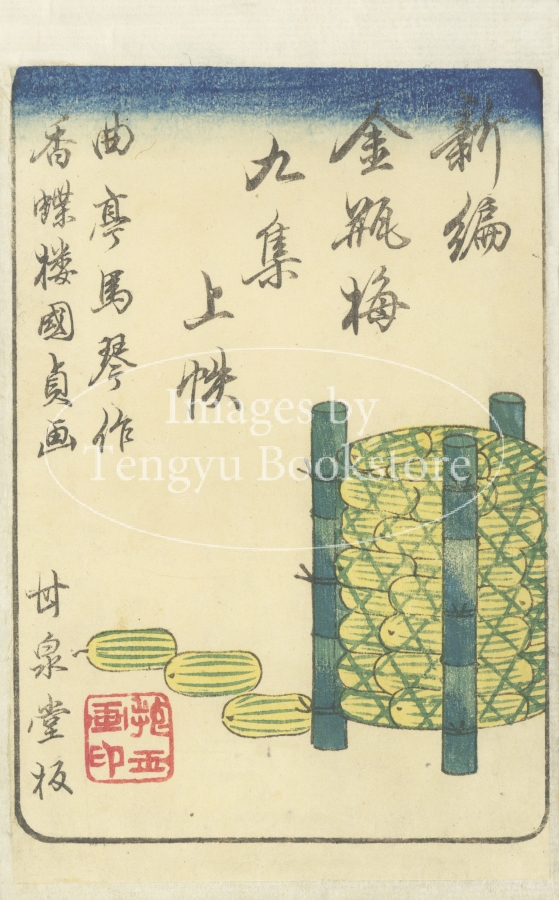 新編
金瓶梅
九集
上帙
曲亭馬琴作
香蝶楼國貞画
甘泉堂板
Images by
Tengyu Bookstore